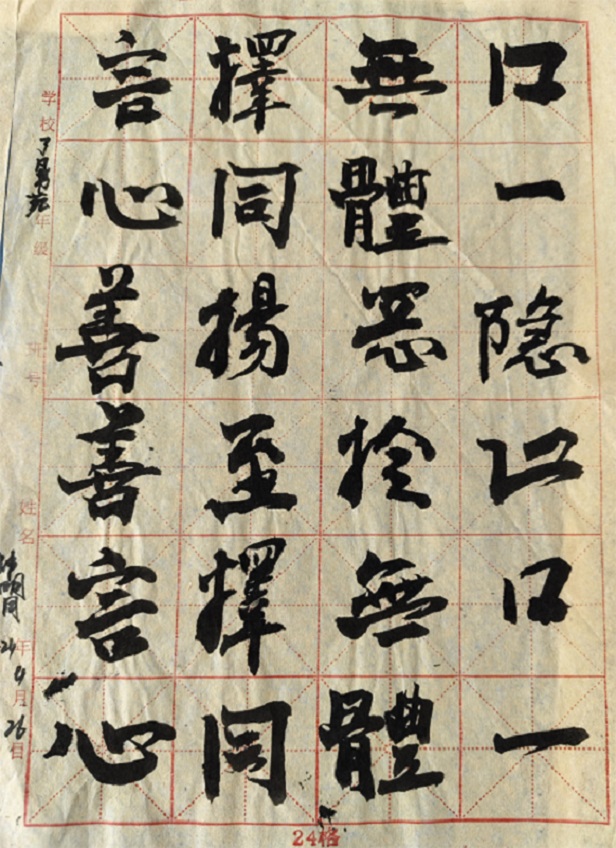 口一隐口一
無體恶扵無體
擇同揚至擇同
言心善善言心
学校
年级
班号
姓名
24年4月26日
24格